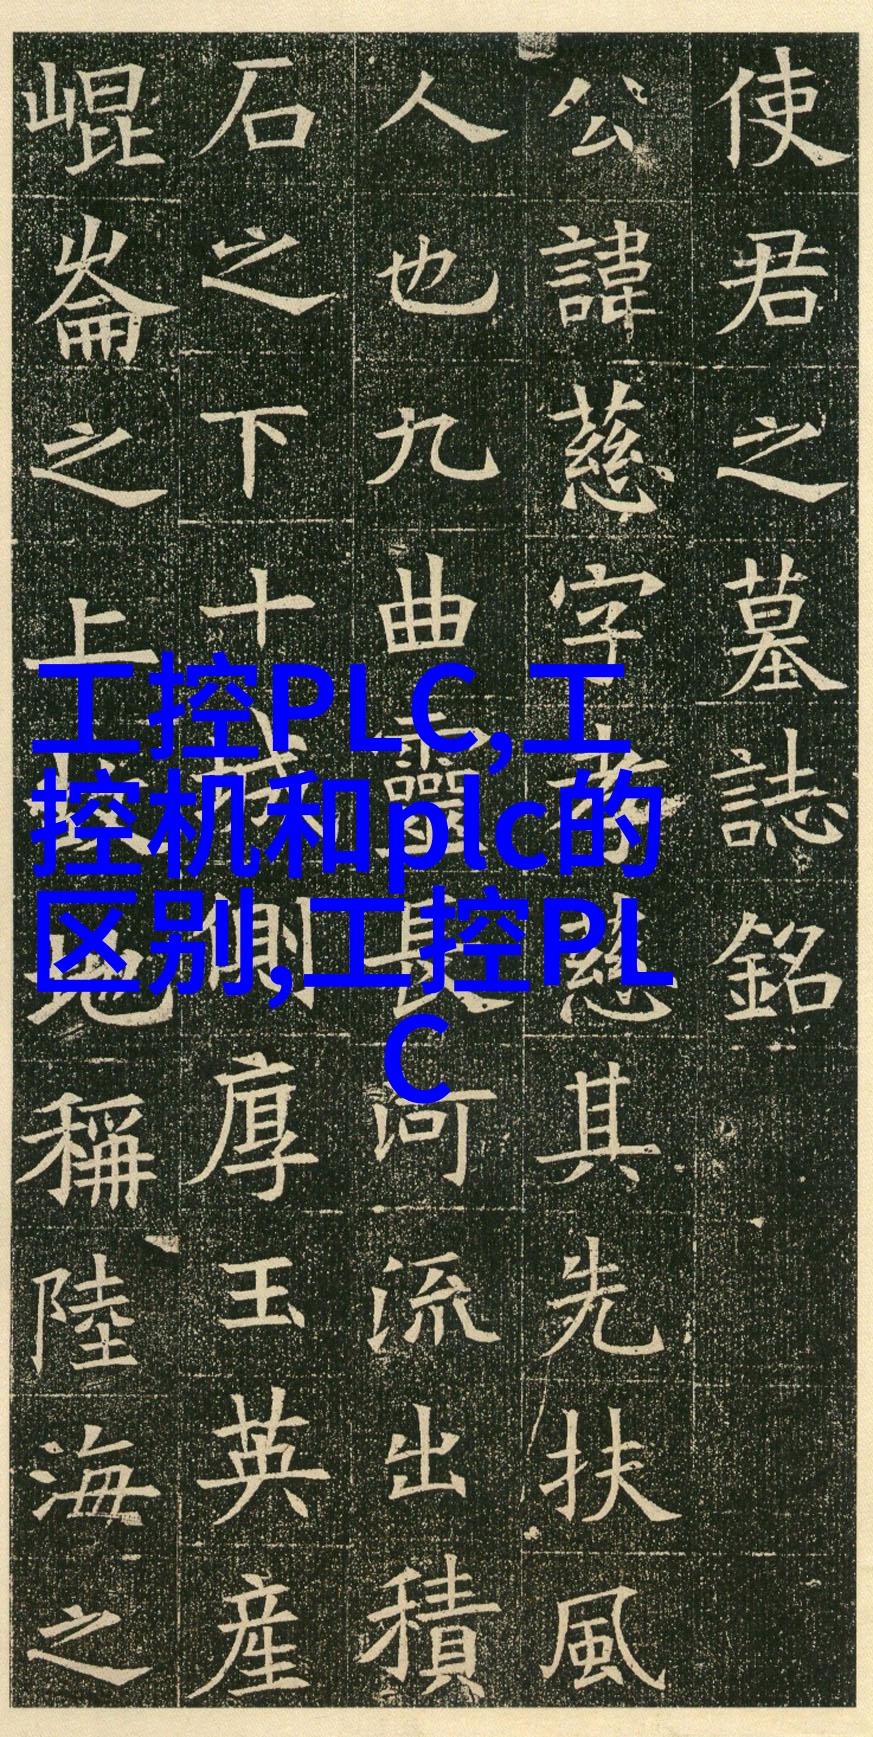 使君之墓誌銘
公諱慈字孝慈其先扶風
人也九曲靈長河流出積
石之下十城側厚玉英産
崐崙之上地稱陸海之
工控PLC,工
控机和plc的
区别,工控PL
C